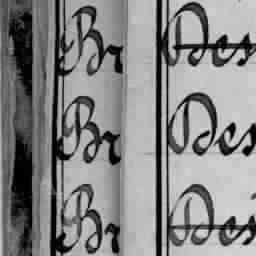 Br Des
Br Des
Br Des